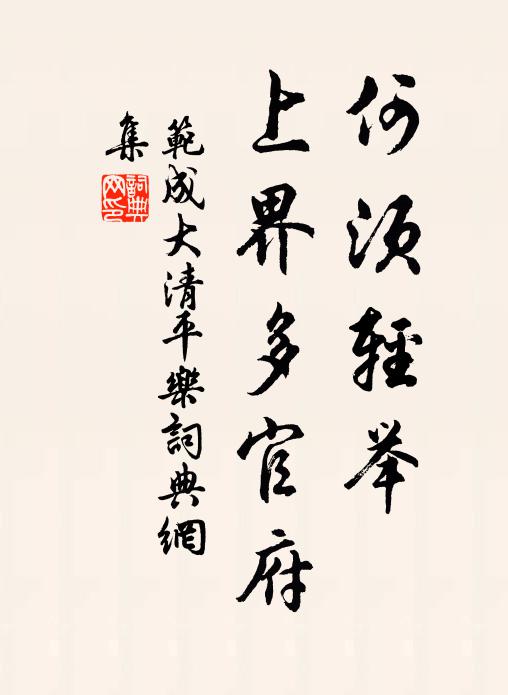 何须輕举
上界多官府
範成大清平樂詞典網
集
詞典
网印